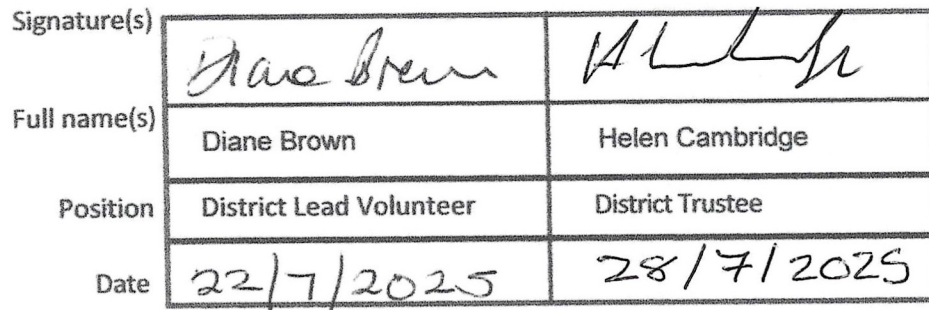 Signature(s) Diane Brown
Full name(s) Diane Brown Helen Cambridge
Position District Lead Volunteer District Trustee
Date 22/7/2025 28/7/2025